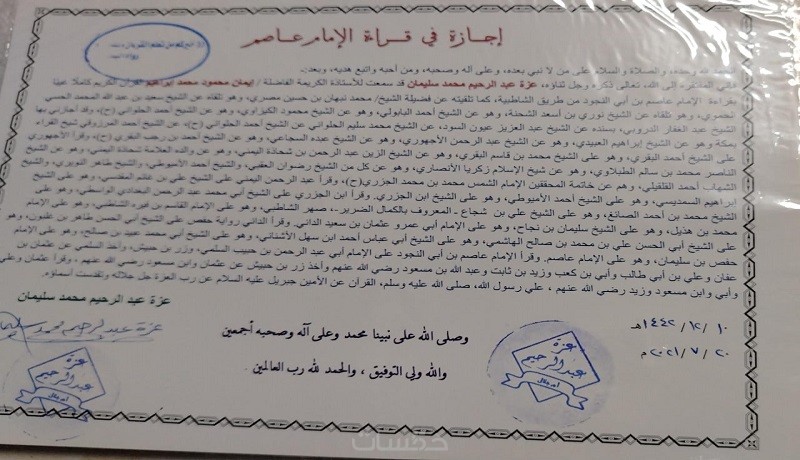 إجازة في قراءة الإمام عاصم
الحمد لله وحده، والصلاة والسلام على من لا نبي بعده، وعلى آله وصحبه، ومن أحبه واتبع هديه، وبعد:
الى الله تعالى ذكره وجل ثناؤه، عزة عبد الرحيم محمد سليمان قد سمعت للأستاذة الكريمة الفاضلة / إيمان محمود محمد إبراهيم القرآن الكريم كاملا غيبا
بقراءة الإمام عاصم بن أبي النجود من طريق الشاطبية، كما تلقيته عن فضيلة الشيخ/ محمد نبهان بن حسين مصري، وهو تلقاه عن الشيخ سعيد بن عبد الله المحمد الحسني
الحموي، وهو تلقاه عن الشيخ نوري بن أسعد الشحنة، وهو عن الشيخ أحمد البابولي، وهو عن الشيخ محمود الكيزاوي، وهو عن الشيخ أحمد الحلواني (ح)، وقد أجازني بها
الشيخ عبد الغفار الدروبي، بسنده عن الشيخ عبد العزيز عيون السود، عن الشيخ محمد سليم الحلواني عن الشيخ أحمد الحلواني (ح)، عن الشيخ أحمد المرزوقي شيخ القراء
بمكة وهو عن الشيخ إبراهيم العبيدي، وهو عن الشيخ عبد الرحمن الأجهوري، وهو عن الشيخ عبده السجاعي، وهو عن الشيخ أحمد بن رجب البقري (ح)، وقرأ الأجهوري
على الشيخ أحمد البقري، وهو على الشيخ محمد بن قاسم البقري، وهو عن الشيخ الزين عبد الرحمن بن شحاذة اليمني، وهو عن والده العلامة شحاذة اليمني، وهو عن الشيخ
الناصر محمد بن سالم الطبلاوي، وهو عن شيخ الإسلام زكريا الأنصاري، وهو عن كل من الشيخ رضوان العقبي، والشيخ أحمد الأميوطي، والشيخ طاهر النويري، والشيخ
الشهاب أحمد القلقيلي، وهم عن خاتمة المحققين الإمام الشمس محمد بن محمد الجزري(ح)، وقرأ عبد الرحمن اليمني على الشيخ علي بن غانم المقدسي، وهو على الشيخ
إبراهيم السمديسي، وهو على الشيخ أحمد الأميوطي، وهو على الشيخ ابن الجزري. وقرأ ابن الجزري على الشيخ أبي محمد عبد الرحمن البغدادي الواسطي، وهو على
الشيخ محمد بن أحمد الصائغ، وهو على الشيخ علي بن شجاع - المعروف بالكمال الضرير-، صهر الشاطبي، وهو على الإمام القاسم بن فيره الشاطبي، وهو على الإمام علي بن
محمد بن هذيل، وهو على الشيخ سليمان بن نجاح، وهو على الإمام أبي عمرو عثمان بن سعيد الداني. وقرأ الداني رواية حفص على الشيخ أبي الحسن طاهر بن غلبون، وهو
على الشيخ أبي الحسن علي بن محمد بن صالح الهاشمي، وهو على الشيخ أبي عباس أحمد ابن سهل الأشناني، وهو على الشيخ أبي محمد عبيد بن صالح، وهو على الإمام
حفص بن سليمان، وهو على الإمام عاصم. وقرأ الإمام عاصم بن أبي النجود على الإمام أبي عبد الرحمن بن حبيب السلمي، وزر بن حبيش، وأخذ السلمي عن عثمان بن
عفان وعلي بن أبي طالب وأبي بن كعب وزيد بن ثابت وعبد الله بن مسعود رضي الله عنهم وأخذ زر بن حبيش عن عثمان وابن مسعود رضي الله عنهم ، وقرأ عثمان وعلي
وأبي وابن مسعود وزيد رضي الله عنهم ، على رسول الله، صلى الله عليه وسلم، القرآن عن الأمين جبريل عليه السلام عن رب العزة جل جلاله وتقدست أسماؤه.
عزة عبد الرحيم محمد سليمان
١٠ /١٢ /١٤٤٢هـ
وصلى الله على نبينا محمد وعلى آله وصحبه أجمعين
عزة عبد الرحيم محمد سليمان
٢٠ /٧ /٢٠٢١ م
والله ولي التوفيق ، والحمد لله رب العالمين
عزة
عبد الرحيم
عزة
عبد الرحيم
خمسات